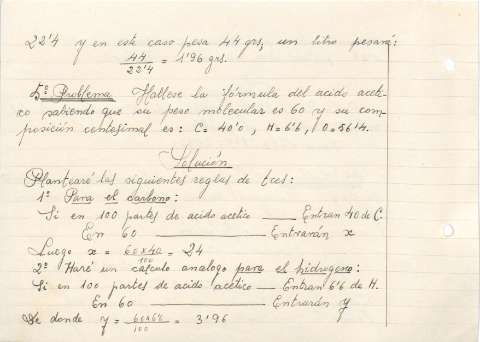 22'4 y en este caso pesa 44 grs; un litro pesará:
44/22'4 = 1'96 grs.
5º Problema Hallese la fórmula del acido aceti-
co sabiendo que su peso molecular es 60 y su com-
posición centesimal es: C= 40'0, H=6'6, O=56'4.
Solución
Plantearé las siguientes reglas de tres:
1º Para el carbono:
Si en 100 partes de acido acetico — Entran 40 de C.
En 60 — Entrarán x
Luego x = 60x40/100 = 24
2º Haré un calculo analogo para el hidrogeno:
Si en 100 partes de acido acetico — Entran 6'6 de H.
En 60 — Entrarán y
De donde y = 60x6'6/100 = 3'96